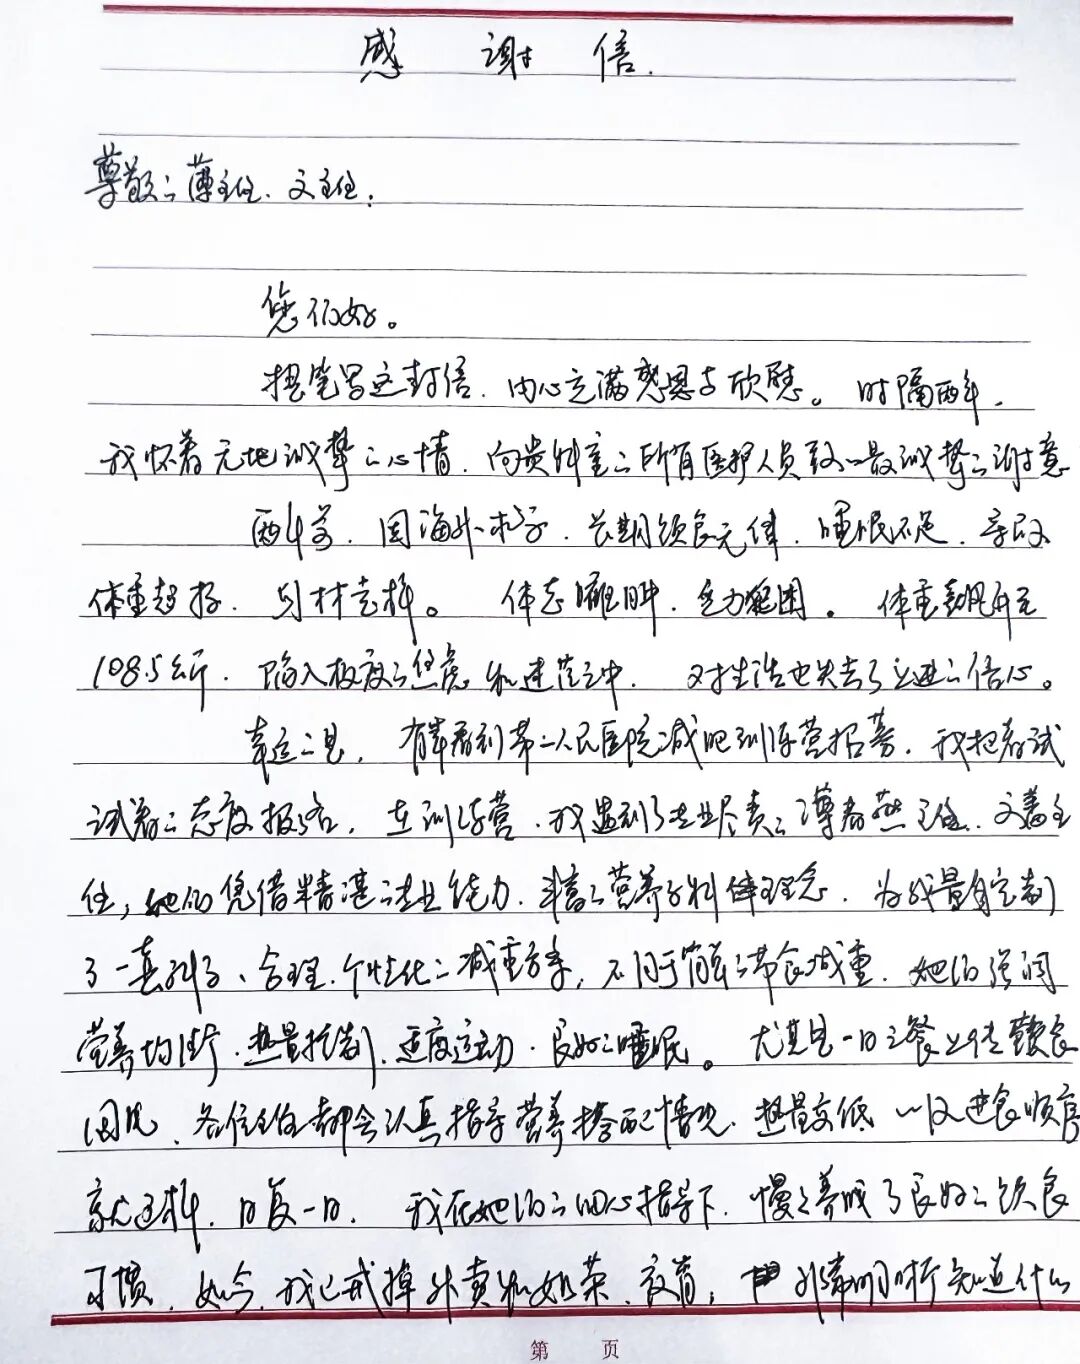 感谢信.
尊敬的薄主任、文主任：
您们好。
提笔写这封信，内心充满感恩与欣慰。时隔两年，
我怀着无比诚挚的心情，向贵科室的所有医护人员致以最诚挚的谢意
两年前，因海外求学，长期饮食无律，睡眠不足，导致
体重超标，身材走样。体态臃肿，乏力犯困。体重飙升至
108.5公斤，陷入极度的焦虑和迷茫之中，对生活也失去了前进的信心。
幸运的是，有幸看到第二人民医院减肥训练营招募，我抱着试
试看的态度报名，在训练营，我遇到了专业尽责的薄春燕主任、文萍主
任，她们凭借精湛的专业能力、丰富的营养学科健康理念，为我量身定制
了一套科学、合理、个性化的减重方案，不同于简单的节食减重，她们强调
营养均衡、热量控制、适度运动、良好的睡眠。尤其是一日三餐上传餐食
图片，各位主任都会认真指导营养搭配情况，热量高低 以及进食顺序
就这样，日复一日，我在她们的细心指导下，慢慢养成了良好的饮食
习惯，如今，我已戒掉外卖和奶茶、夜宵，外出聚餐时也知道什么
第 页